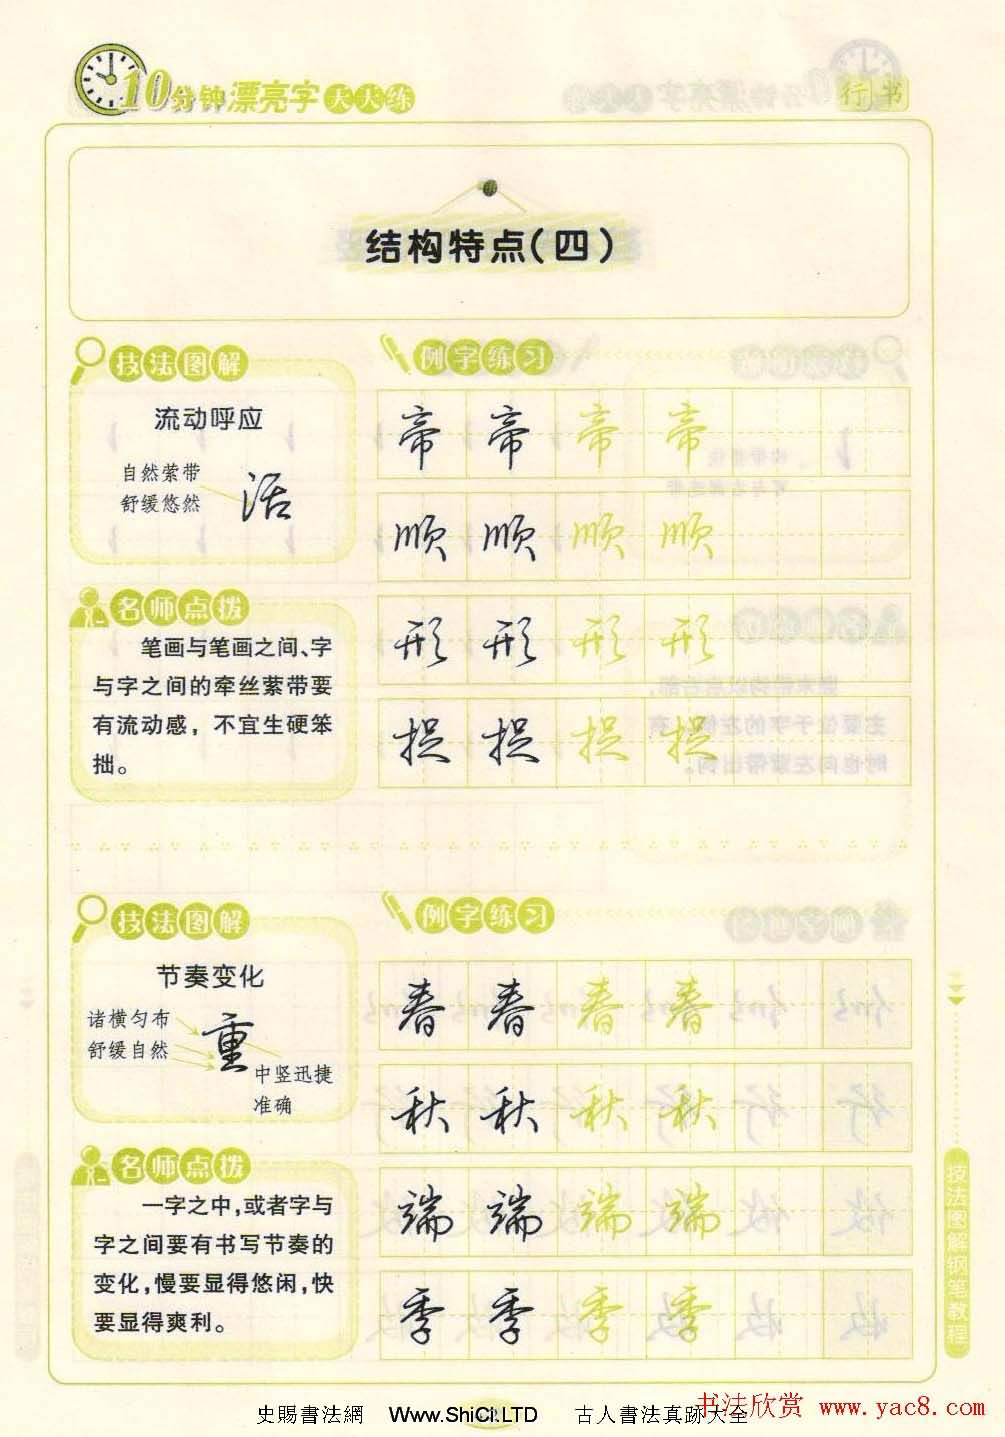 10分钟漂亮字天天练
行书
结构特点（四）
技法图解
流动呼应
自然萦带
舒缓悠然
活
名师点拨
笔画与笔画之间、字
与字之间的牵丝萦带要
有流动感，不宜生硬笨
拙。
例字练习
帝 帝 帝 帝
顺 顺 顺 顺
形 形 形 形
捉 捉 捉 捉
技法图解
节奏变化
诸横匀布
舒缓自然
重
中竖迅捷
准确
名师点拨
一字之中，或者字与
字之间要有书写节奏的
变化，慢要显得悠闲，快
要显得爽利。
例字练习
春 春 春 春
秋 秋 秋 秋
端 端 端 端
季 季 季 季
技法图解钢笔教程
史賜書法網 Www.ShiCi.LTD 古人書法真跡大全
书法欣赏 www.yac8.com